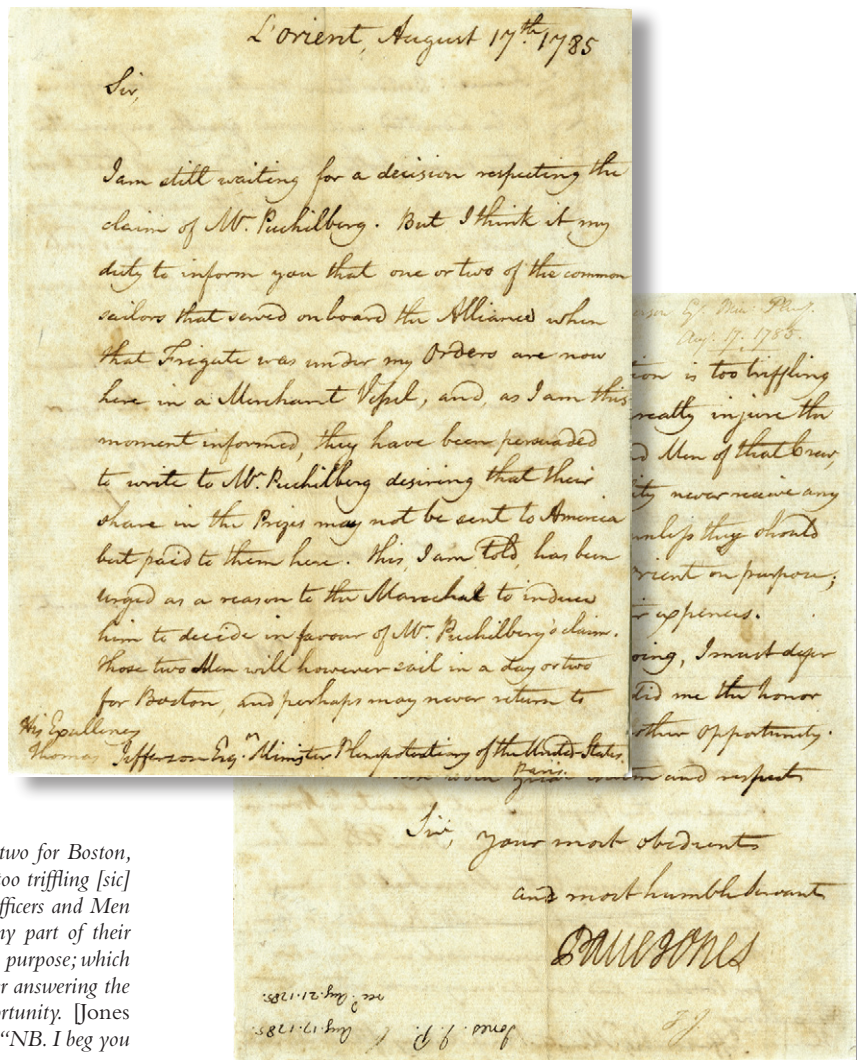 L'Orient, August 17th. 1785
Sir,
I am still waiting for a decision respecting the
claim of Mr. Puchilberg. But I think it my
duty to inform you that one or two of the common
sailors that served on board the Alliance when
that Frigate was under my Orders are now
here in a Merchant Vessel, and, as I am this
moment informed, they have been persuaded
to write to Mr. Puchilberg desiring that their
share in the Prizes may not be sent to America
but paid to them here. This, I am told, has been
urged as a reason to the Marechal to induce
him to decide in favour of Mr. Puchilberg's claim.
Those two Men will however sail in a day or two
for Boston, and perhaps may never return to
His Excellency
Thomas Jefferson Esqr. Minister Plenipotentiary of the United States.
Paris.
Aug. 17. 1785.
tion is too triffling
reatly injure the
d Men of that Crew,
ity never receive any
unless they should
rient on purpose;
r expences.
oing, I must defer
did me the honor
other opportunity.
and respects
Sir, your most obedient
and most humble Servant
Paul Jones
T J
Jones J. P. Aug. 17. 1785
recd. Aug. 21. 1785.
two for Boston,
too triffling [sic]
fficers and Men
ny part of their
purpose; which
r answering the
rtunity. [Jones
“NB. I beg you